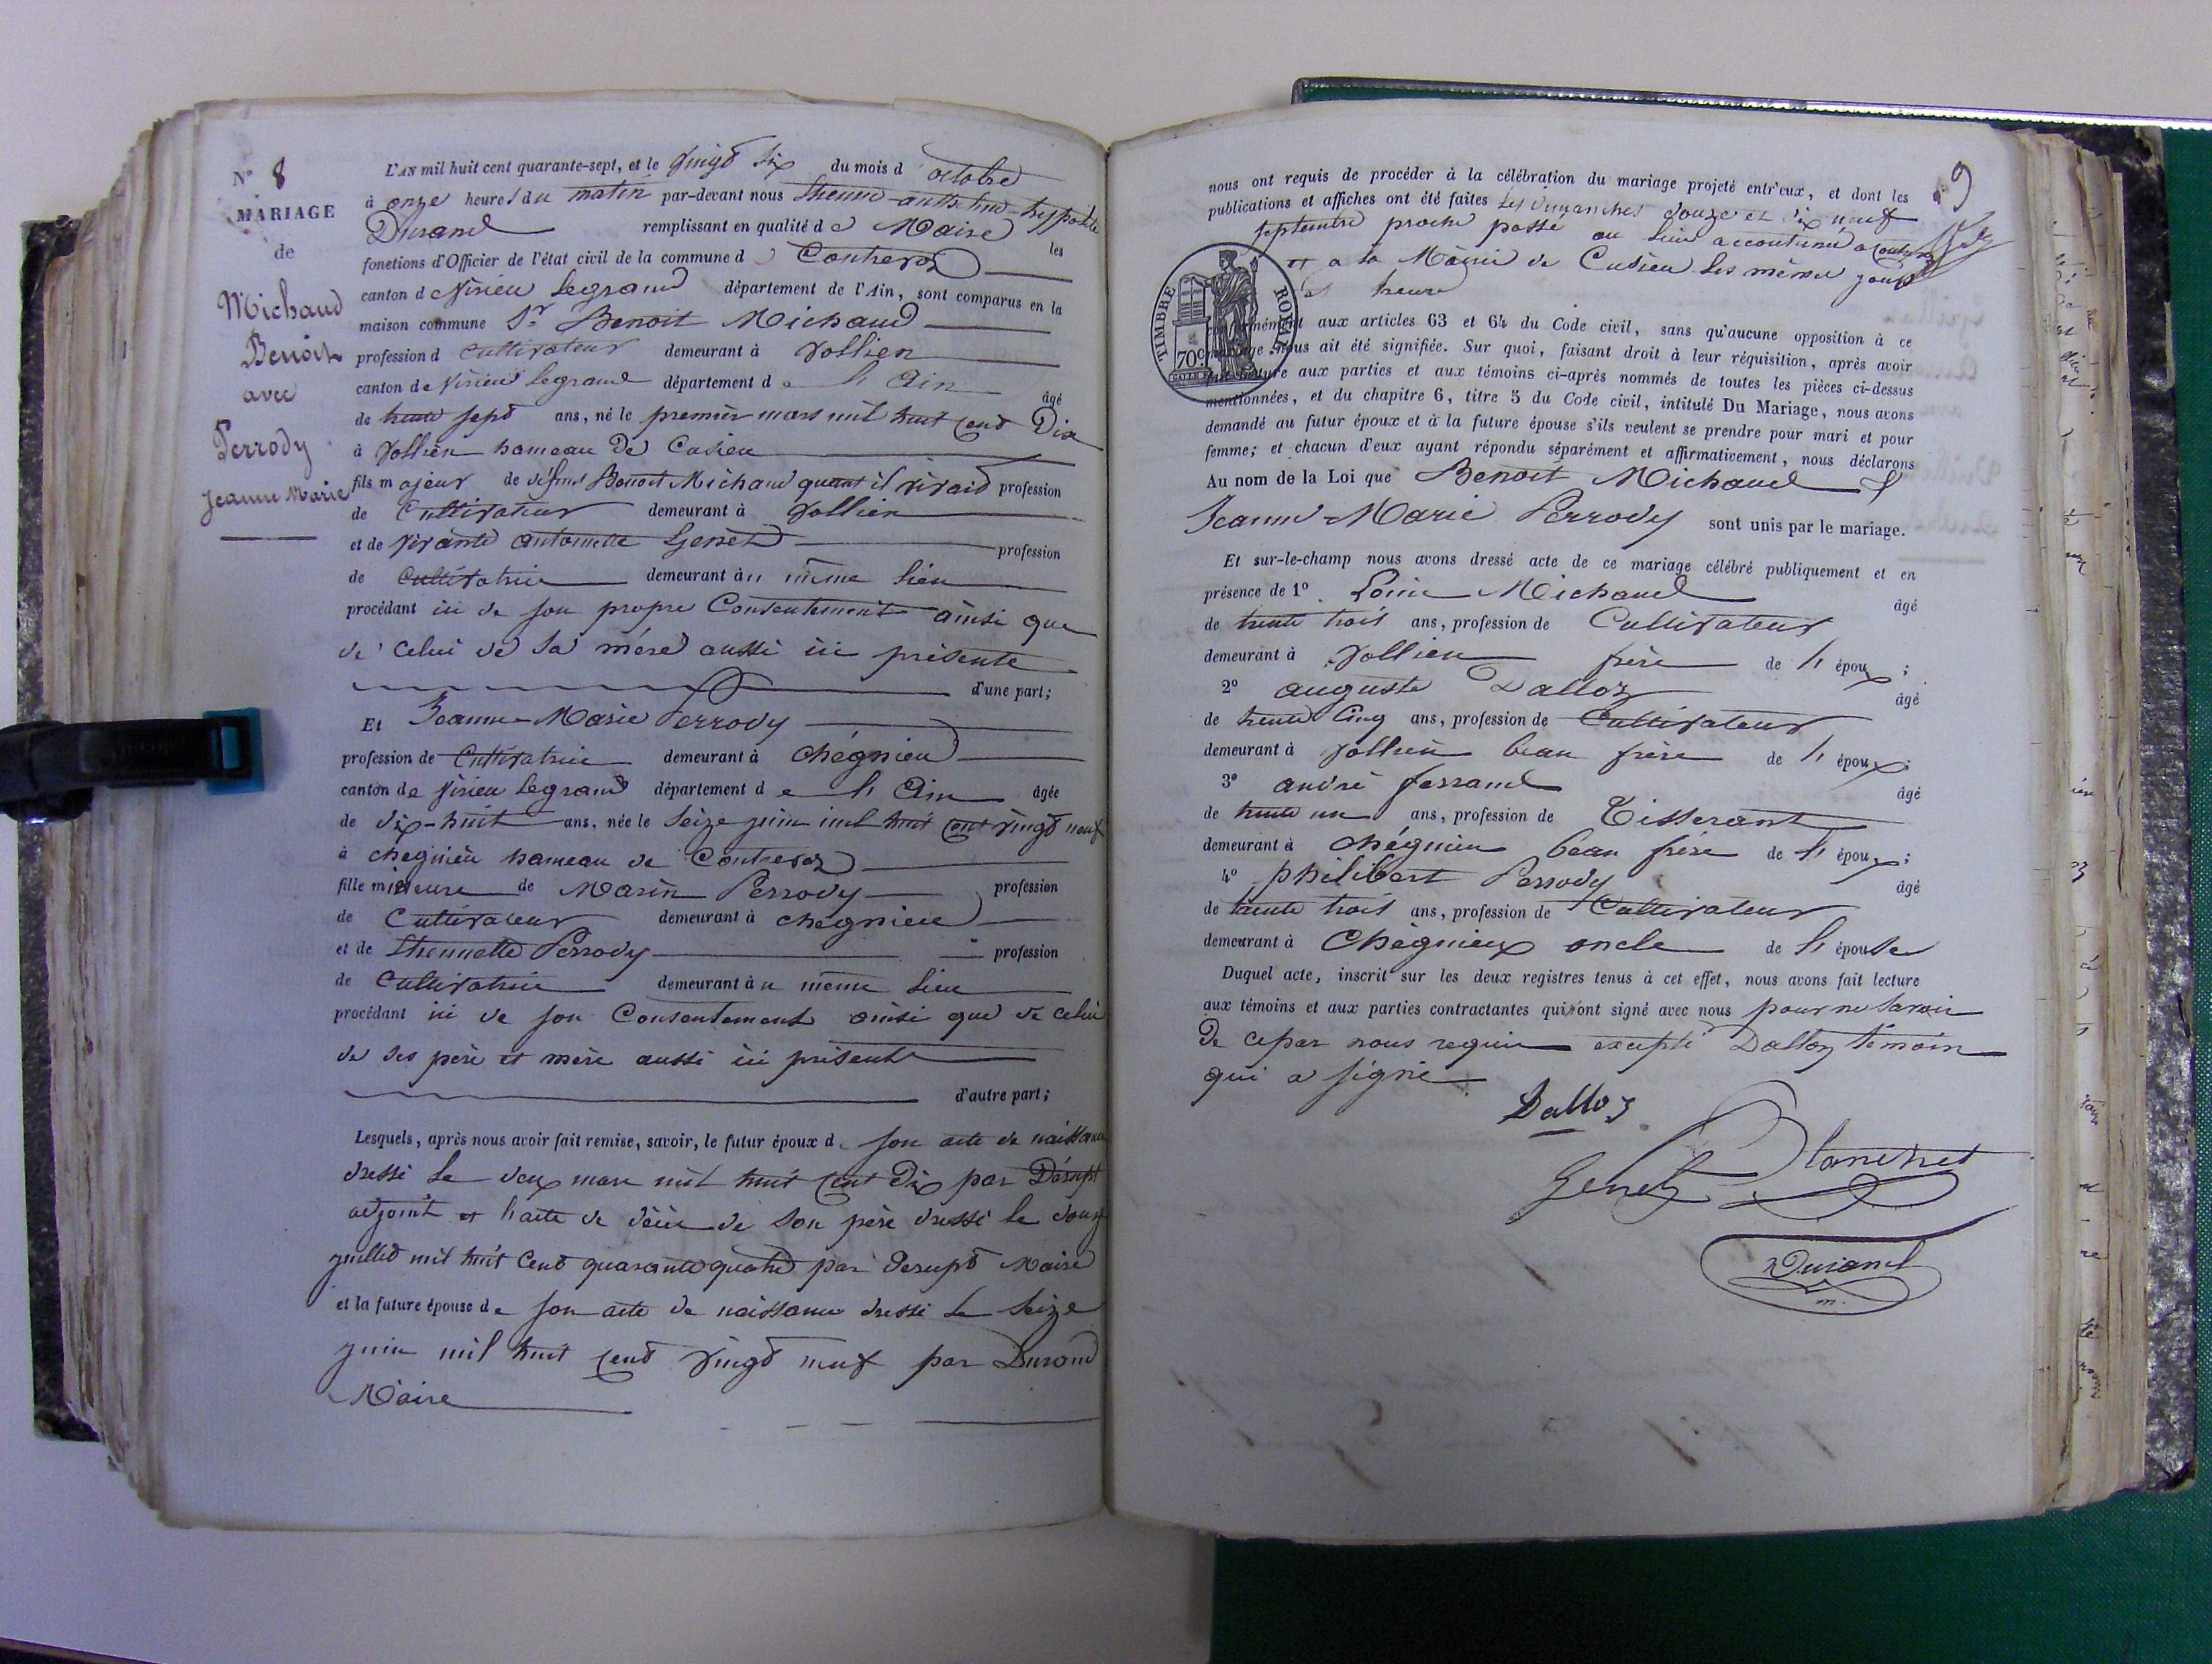 N° 8
MARIAGE
de
Michaud
Benoit
avec
Perrody
Jeanne Marie
L'AN mil huit cent quarante-sept, et le vingt six du mois d octobre
à onze heures du matin par-devant nous hyppolite
Durand remplissant en qualité de Maire les
fonctions d'Officier de l'état civil de la commune de Contrevoz
canton de Virieu Legrand département de l'Ain, sont comparus en la
maison commune Sr Benoit Michaud
profession d cultivateur demeurant à Vollien
canton de Virieu Legrand département de l'Ain âgé
de trente sept ans, né le premier mars mil huit cent Dix
à Vollien hameau de Cusieu
fils majeur de défunt Benoit Michaud quant il vivait profession
de Cultivateur demeurant à Vollien
et de vivante antoinette Genet profession
de Cultivatrice demeurant au même lieu
procédant ici de son propre Consentement ainsi que
de celui de sa mère aussi ici présente
d'une part;
Et Jeanne-Marie Perrody
profession de Cultivatrice demeurant à Chégnieu
canton de Virieu Legrand département de l'Ain âgée
de dix-huit ans, née le seize juin mil huit cent vingt neuf
à chegnieu hameau de Contrevoz
fille mineure de Marin Perrody profession
de Cultivateur demeurant à chegnieu
et de Etiennette Perrody profession
de Cultivatrice demeurant au même lieu
procédant ici de son Consentement ainsi que de celui
de ses père et mère aussi ici présents
d'autre part;
Lesquels, après nous avoir fait remise, savoir, le futur époux de son acte de naissance
dressé le deux mars mil huit cent Dix par
adjoint et l'acte de décès de son père dressé le douze
juillet mil huit cent quarante quatre par Maire
et la future épouse de son acte de naissance dressé le seize
juin mil huit cent vingt neuf par Durand
Maire
9
nous ont requis de procéder à la célébration du mariage projeté entr'eux, et dont les
publications et affiches ont été faites les dimanches douze et dix neuf
septembre proche passé au lieu accoutumé a
et a la Mairie de Cusieu les mêmes jours
et heure
TIMBRE ROYAL
70c.
conformément aux articles 63 et 64 du Code civil, sans qu'aucune opposition à ce
mariage nous ait été signifiée. Sur quoi, faisant droit à leur réquisition, après avoir
fait lecture aux parties et aux témoins ci-après nommés de toutes les pièces ci-dessus
mentionnées, et du chapitre 6, titre 5 du Code civil, intitulé Du Mariage, nous avons
demandé au futur époux et à la future épouse s'ils veulent se prendre pour mari et pour
femme; et chacun d'eux ayant répondu séparément et affirmativement, nous déclarons
Au nom de la Loi que Benoit Michaud &
Jeanne-Marie Perrody sont unis par le mariage.
Et sur-le-champ nous avons dressé acte de ce mariage célébré publiquement et en
présence de 1° Louis Michaud âgé
de trente trois ans, profession de Cultivateur
demeurant à Vollien frère de l' époux;
2° auguste Dalloz âgé
de trente cinq ans, profession de Cultivateur
demeurant à Vollien beau frère de l' époux;
3° andré ferrand âgé
de trente un ans, profession de Tisserant
demeurant à Chégnieu beau frère de l' époux;
4° philibert Perrody âgé
de trente trois ans, profession de Cultivateur
demeurant à Chégnieux oncle de l' épouse
Duquel acte, inscrit sur les deux registres tenus à cet effet, nous avons fait lecture
aux témoins et aux parties contractantes qui n'ont signé avec nous pour ne savoir
De ce par nous requis excepté Dalloz témoin
qui a signé
Dalloz
Blanchet
Genet
Durand
m.